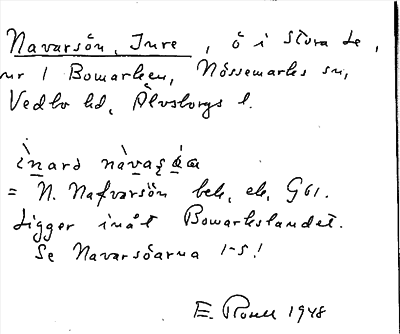 Navarsön, Inre, ö i Stora Le,
nr 1 Bomarken, Nössemarks sn,
Vedbo hd, Älvsborgs l.
= N. Nafvarsön bek, ek, G61.
Ligger inåt Bomarkslandet.
Se Navarsöarna 1-5!
E. 1948